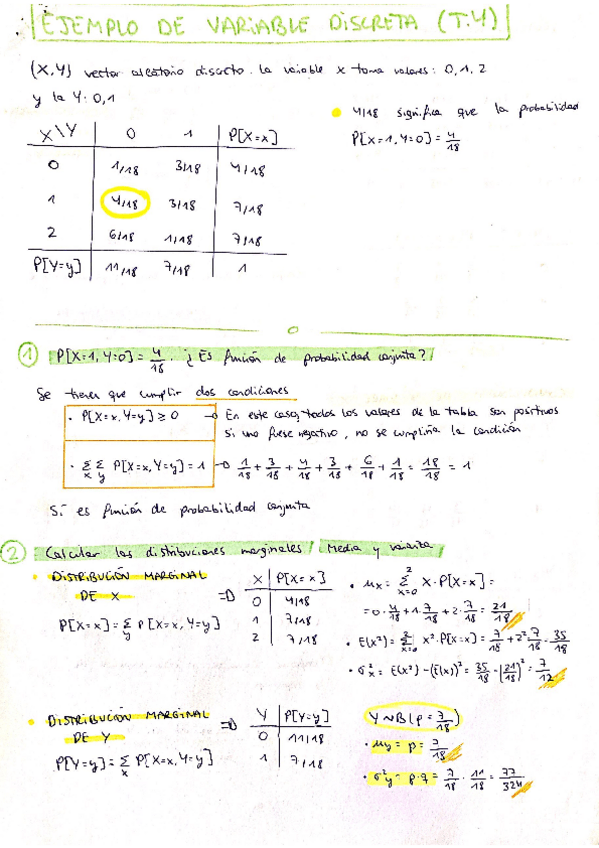 EJEMPLO DE VARIABLE DISCRETA (T.4)
(X,Y) vector aleatorio discreto. La variable x toma valores: 0, 1, 2
y la Y: 0,1
4/18 significa que la probabilidad
P[X=1, Y=0] = 4/18
X\Y 0 1 P[X=x]
0 1/18 3/18 4/18
1 4/18 3/18 7/18
2 6/18 1/18 7/18
P[Y=y] 11/18 7/18 1
① P[X=1, Y=0] = 4/18. ¿Es función de probabilidad conjunta?
Se tienen que cumplir dos condiciones
· P[X=x, Y=y] ≥ 0 → En este caso, todos los valores de la tabla son positivos
si uno fuese negativo, no se cumpliría la condición
· Σx Σy P[X=x, Y=y] = 1 → 1/18 + 3/18 + 4/18 + 3/18 + 6/18 + 1/18 = 18/18 = 1
Sí es función de probabilidad conjunta
② Calcular las distribuciones marginales / Media y varianza
• DISTRIBUCIÓN MARGINAL
DE X ⇒
P[X=x] = Σy P[X=x, Y=y]
X P[X=x]
0 4/18
1 7/18
2 7/18
• μx = Σ x=0 2 x·P[X=x] =
= 0·4/18 + 1·7/18 + 2·7/18 = 21/18
• E(x²) = Σ x=0 2 x²·P[X=x] = 7/18 + 2²·7/18 = 35/18
• σ²x = E(x²) - (E(x))² = 35/18 - (21/18)² = 7/12
• DISTRIBUCIÓN MARGINAL
DE Y ⇒
P[Y=y] = Σx P[X=x, Y=y]
Y P[Y=y]
0 11/18
1 7/18
Y~B(p = 7/18)
• μy = p = 7/18
• σ²y = p·q = 7/18 · 11/18 = 77/324